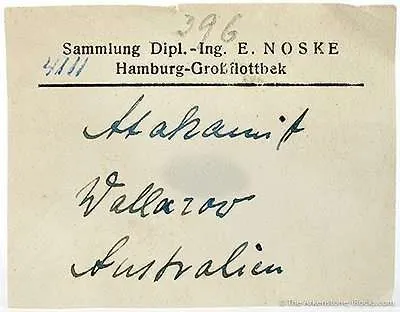 396
Sammlung Dipl.-Ing. E. NOSKE
4111
Hamburg-Großflottbek
Atakamit
Wallaroo
Australien
© The Arkenstone iRocks.com